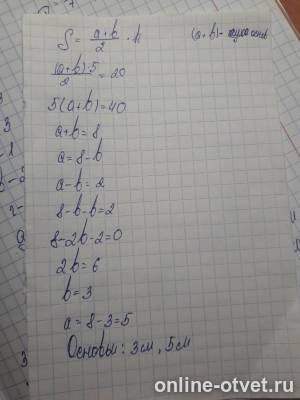 S = (a+b)/2 · h (a+b) - сума основ
(a+b)·5/2 = 20
5(a+b)=40
a+b=8
a=8-b
a-b=2
8-b-b=2
8-2b-2=0
2b=6
b=3
a=8-3=5
Основы: 3м, 5м
online-otvet.ru